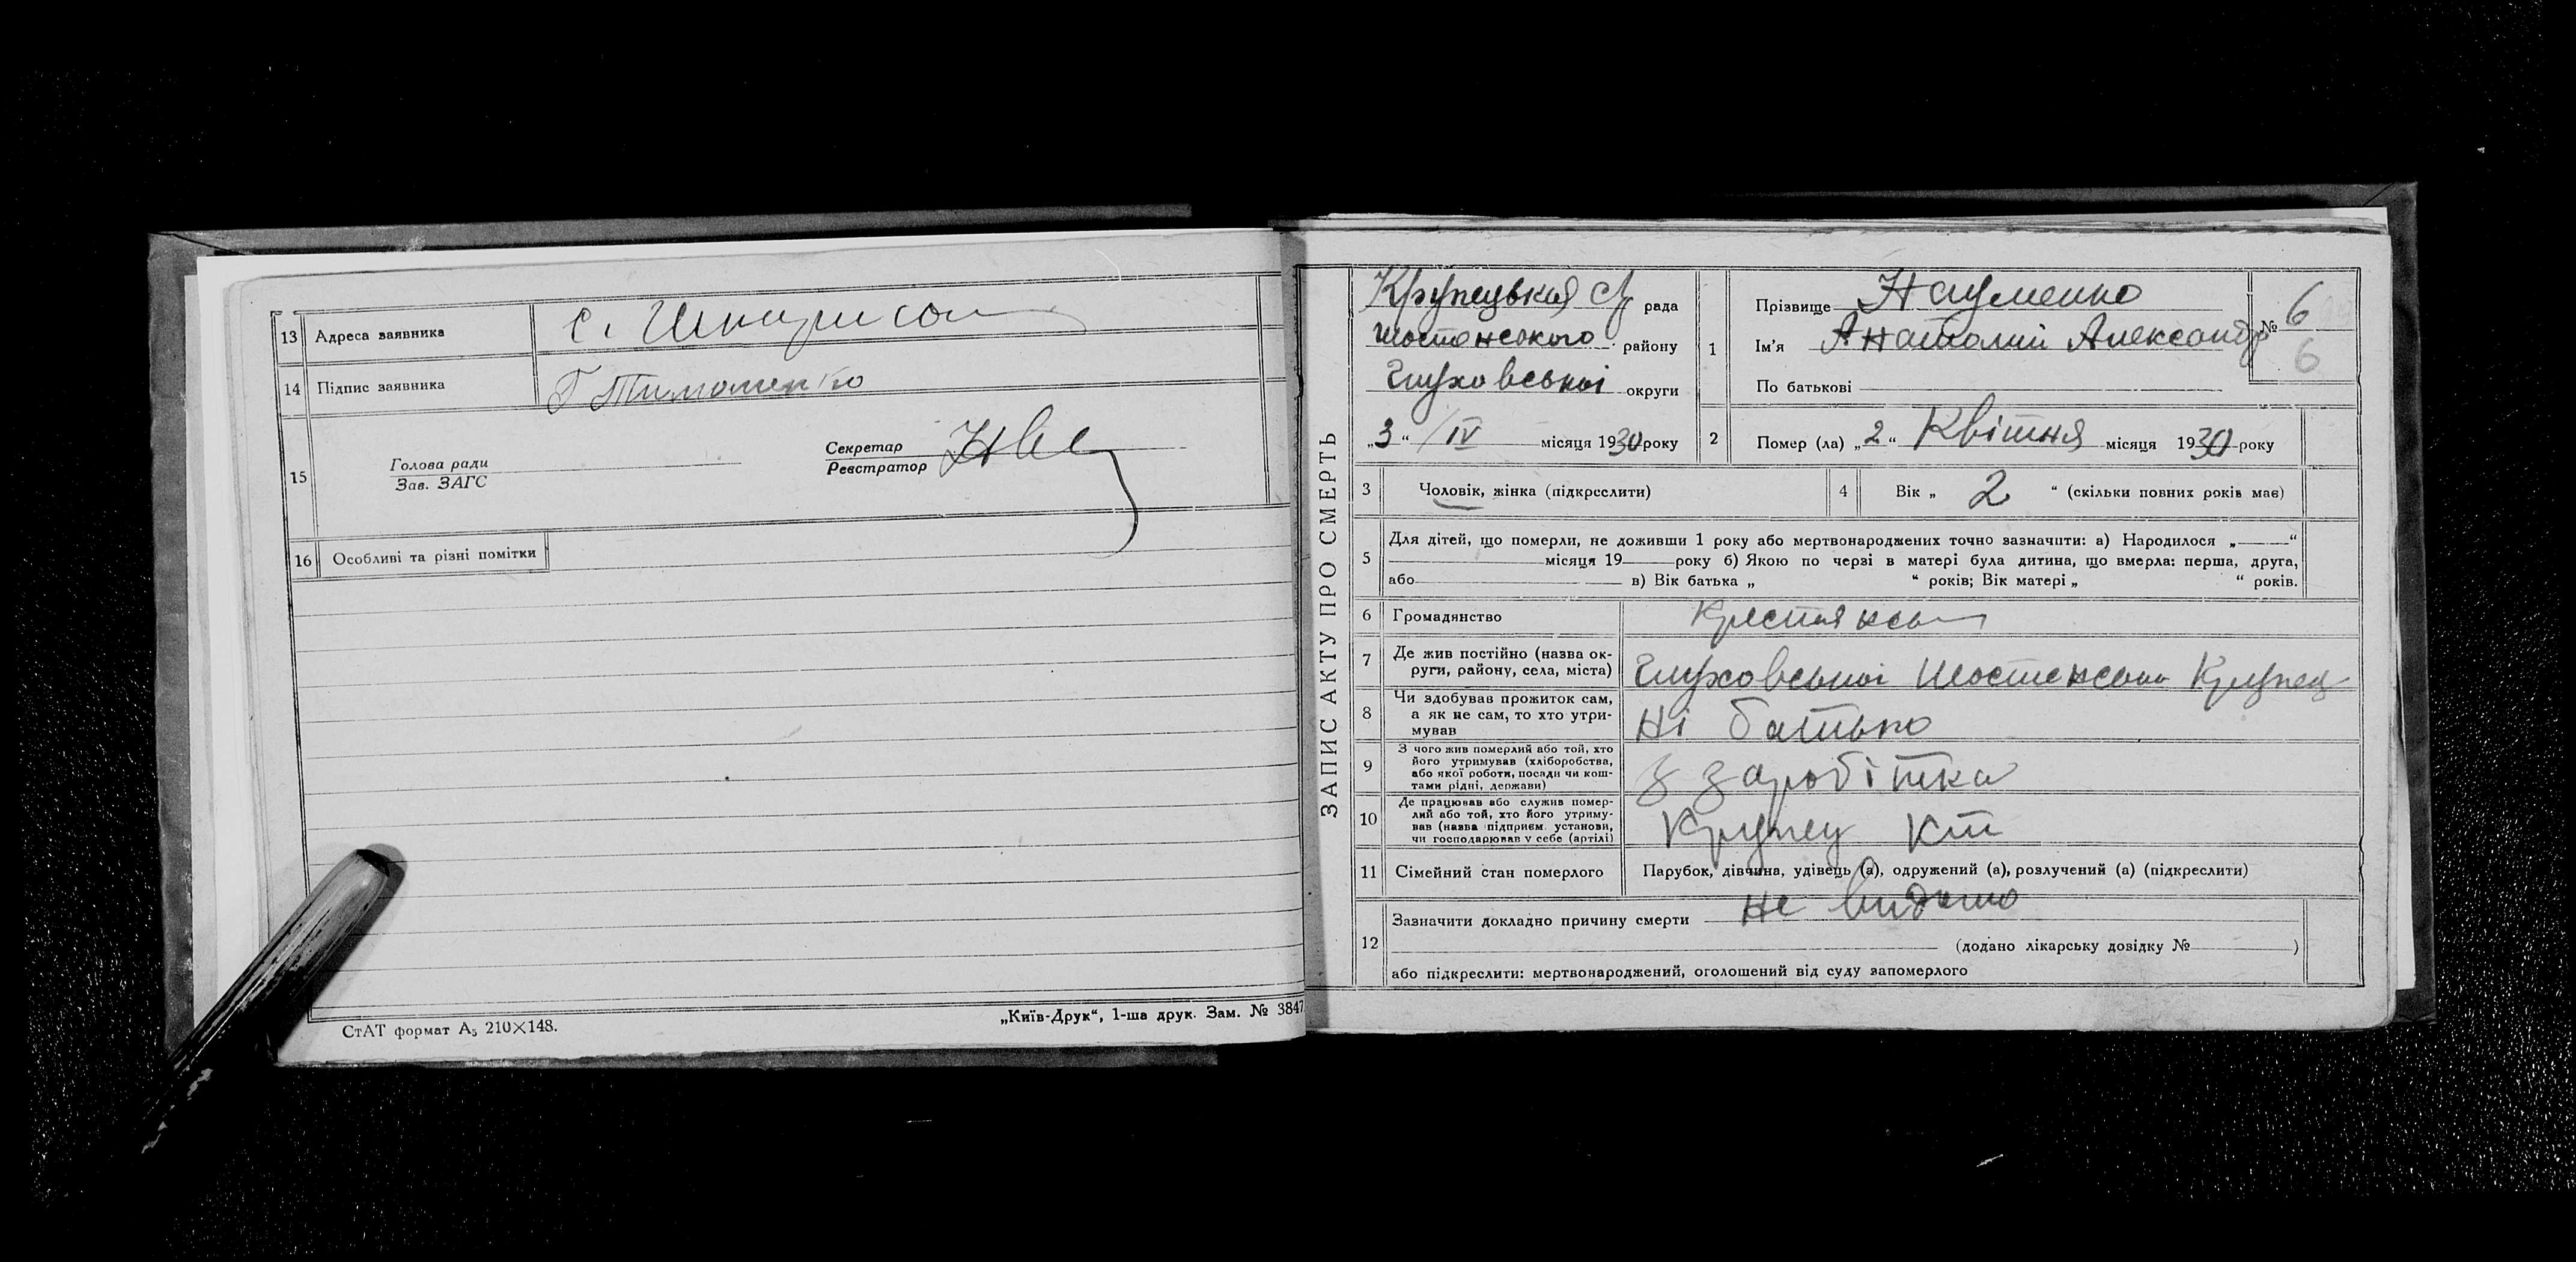 13 Адреса заявника с.
14 Підпис заявника Г Тимошенко
15 Голова ради
Зав. ЗАГС
Секретар
Реєстратор
16 Особливі та різні помітки
СтАТ формат А₅ 210×148.
„Київ-Друк“, 1-ша друк. Зам. № 3847
ЗАПИС АКТУ ПРО СМЕРТЬ
Крупецькая с/ рада
Шостенского району
Глуховської округи
„3“ /IV місяця 1930 року
1 Прізвище Науменко
Ім'я Анатолий Александр
По батькові
№ 6
6
2 Помер (ла) „2“ Квітня місяця 1930 року
3 Чоловік, жінка (підкреслити)
4 Вік „ 2 “ (скільки повних років має)
5 Для дітей, що померли, не доживши 1 року або мертвонароджених точно зазначити: а) Народилося „ “
місяця 19 року б) Якою по черзі в матері була дитина, що вмерла: перша, друга,
або в) Вік батька „ “ років; Вік матері „ “ років.
6 Громадянство
7 Де жив постійно (назва ок-
руги, району, села, міста) Глуховської Шостенської Крупец
8 Чи здобував прожиток сам,
а як не сам, то хто утри-
мував Ні батько
9 З чого жив померлий або той, хто
його утримував (хліборобства,
або якої роботи, посади чи кош-
тами рідні, держави) З заробітка
10 Де працював або служив помер-
лий або той, хто його утриму-
вав (назва підприєм. установи,
чи господарював у себе (артілі) Крупец
11 Сімейний стан померлого Парубок, дівчина, удівець (а), одружений (а), розлучений (а) (підкреслити)
12 Зазначити докладно причину смерти не видомо
(додано лікарську довідку № )
або підкреслити: мертвонароджений, оголошений від суду запомерлого